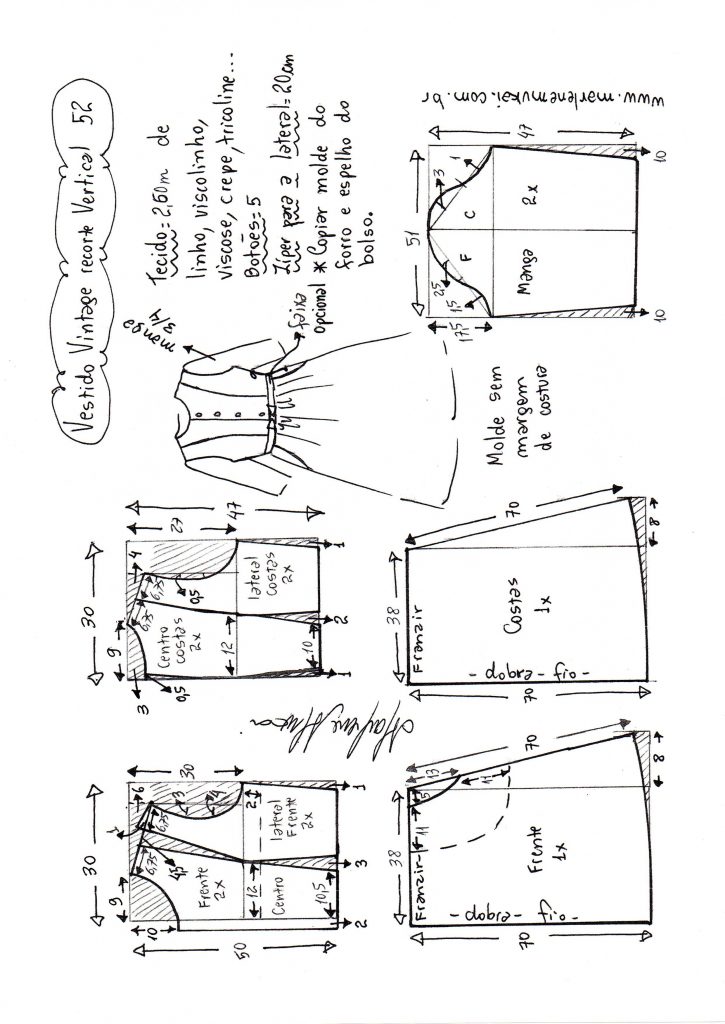 Vestido Vintage recorte Vertical 52
Tecido=2,60m de
linho, viscolinho,
viscose, crepe, tricoline...
Botões=5
Zíper para a lateral=20cm
* Copiar molde do
forro e espelho do
bolso.
manga
3/4
faixa
opcional
Molde sem
margem
de costura
www.marlenemukai.com.br
51
47
17,5
3
1
2,5
1,5
F
C
Manga
2x
10
10
30
27
47
9
4
3
0,5
6,75
6,75
0,5
Centro
costas
2x
lateral
costas
2x
12
10
1
2
1
38
Franzir
70
Costas
1x
- dobra - fio -
70
8
30
30
50
9
10
6
1
3
4
6,75
6,75
4,5
Frente
2x
Centro
lateral
Frente
2x
2
12
10,5
2
3
1
38
Franzir
11
5
13
11
70
Frente
1x
- dobra - fio -
70
8